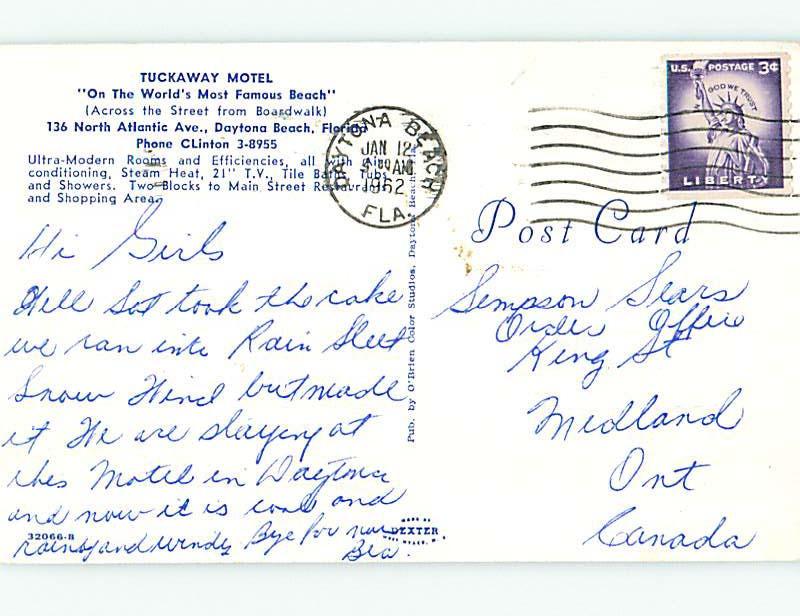 TUCKAWAY MOTEL
"On The World's Most Famous Beach"
(Across the Street from Boardwalk)
136 North Atlantic Ave., Daytona Beach, Florida
Phone CLinton 3-8955
Ultra-Modern Rooms and Efficiencies, all with
conditioning, Steam Heat, 21" T.V., Tile Bath, Tubs
and Showers. Two Blocks to Main Street Restaurants
and Shopping Area.
DAYTONA BEACH
JAN 12
AM
1962
FLA.
U.S. POSTAGE 3¢
IN GOD WE TRUST
LIBERTY
Post Card
Hi Girls
Well Sot took the cake
we ran into Rain Sleet
Snow Wind but made
it We are staying at
this Motel in Daytona
and now it is cool and
rainy and windy Bye for now
Bea.
Pub. by O'Brien Color Studios, Daytona Beach, Fla.
32066-B
DEXTER
Simpson Sears
Order Office
King St
Midland
Ont
Canada